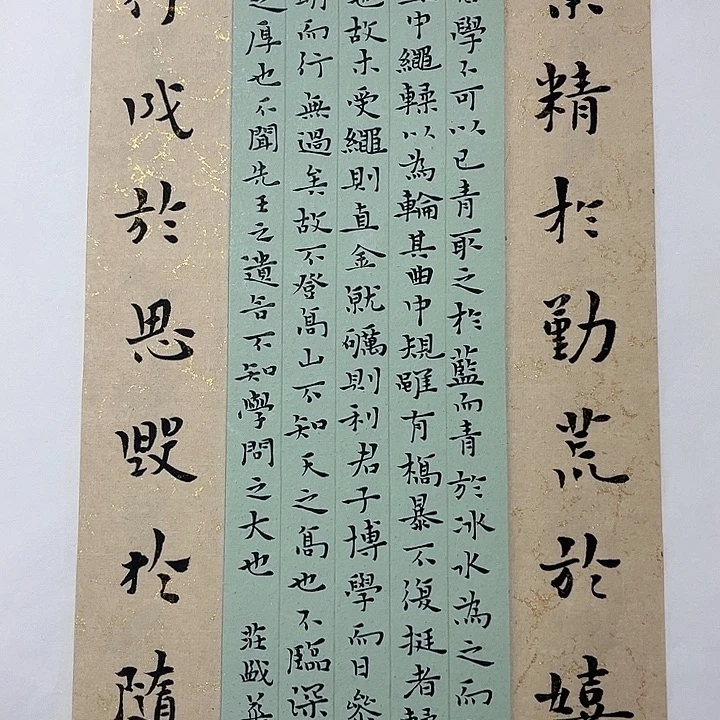 精於勤荒於嬉
學不可以已青取之於藍而青於冰水為之而
中繩輮以為輪其曲中規雖有槁暴不復挺者輮
也故木受繩則直金就礪則利君子博學而日參
明而行無過矣故不登高山不知天之高也不臨深
之厚也不聞先王之遺言不知學問之大也 莊
行成於思毀於隨